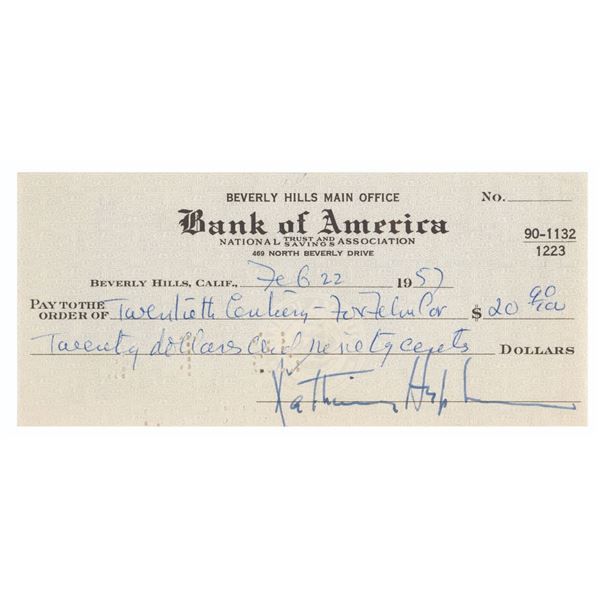 BEVERLY HILLS MAIN OFFICE No.
Bank of America
NATIONAL TRUST AND SAVINGS ASSOCIATION
469 NORTH BEVERLY DRIVE
90-1132
1223
BEVERLY HILLS, CALIF., Feb 22 1957
PAY TO THE ORDER OF Twentieth Century-Fox Film Cor $ 20 90/100
Twenty dollars and ninety cents DOLLARS
Katharine Hepburn